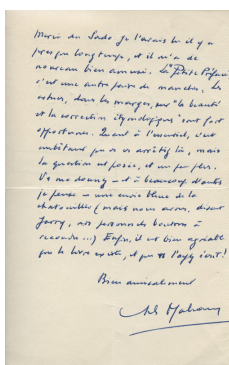 Merci du Sade. Je l'avais lu il y a
presque longtemps, et il m'a de
nouveau bien amusé. La Petite Préface
c'est une autre paire de manches, les
notes, dans les marges, sur "la beauté
et la correction étymologiques" sont fort
opportunes. Quant à l'essentiel, c'est
qu'on s'arrête là, mais
la question est posée, et un peu plus.
à beaucoup d'autres
je pense — une envie bleue de la
chatouiller (mais nous avons, disait
Jarry, nos personnels boutons à
recoudre...) Enfin, il est bien agréable
que le livre existe, et que l'ayez écrit!
Bien amicalement